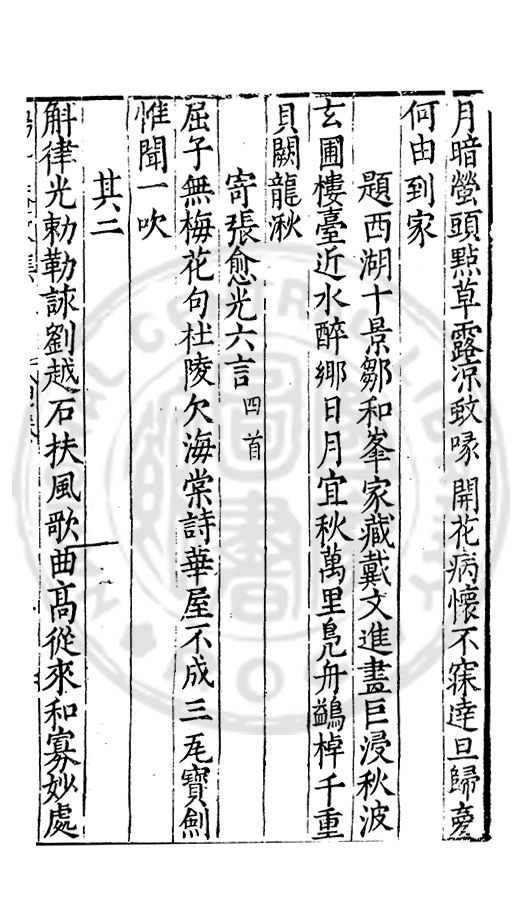 月暗螢頭點草露凉蚊喙開花病懷不寐達旦歸夢
何由到家
題西湖十景鄒和峯家藏戴文進畫巨浸秋波
玄圃樓臺近水醉鄉日月宜秋萬里鳧舟鷁棹千重
貝闕龍湫
寄張愈光六言四首
屈子無梅花句杜陵欠海棠詩華屋不成三瓦寶劍
惟聞一吹
其二
斛律光勅勒謌劉越石扶風歌曲高從來和寡妙處